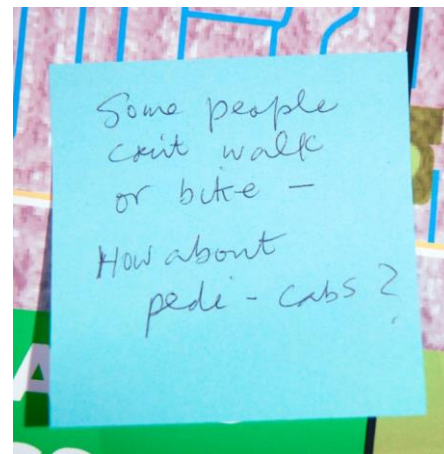 Some people
can't walk
or bike –
How about
pedi-cabs?
A